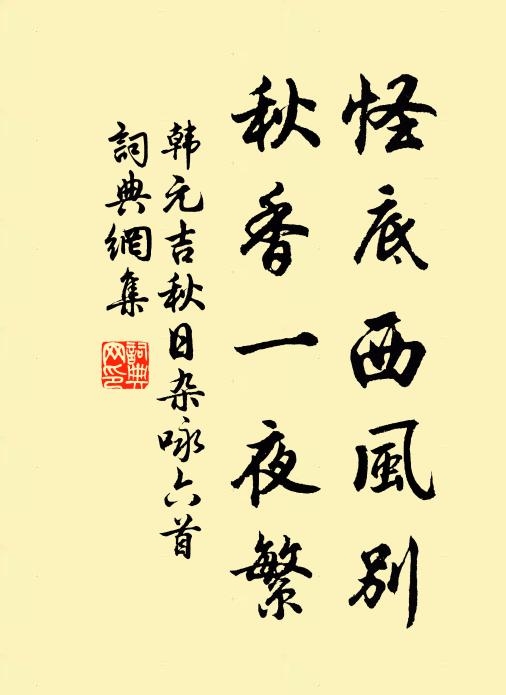 怪底西風别
秋香一夜繁
韩元吉秋日杂咏六首
詞典網集
詞典
网印